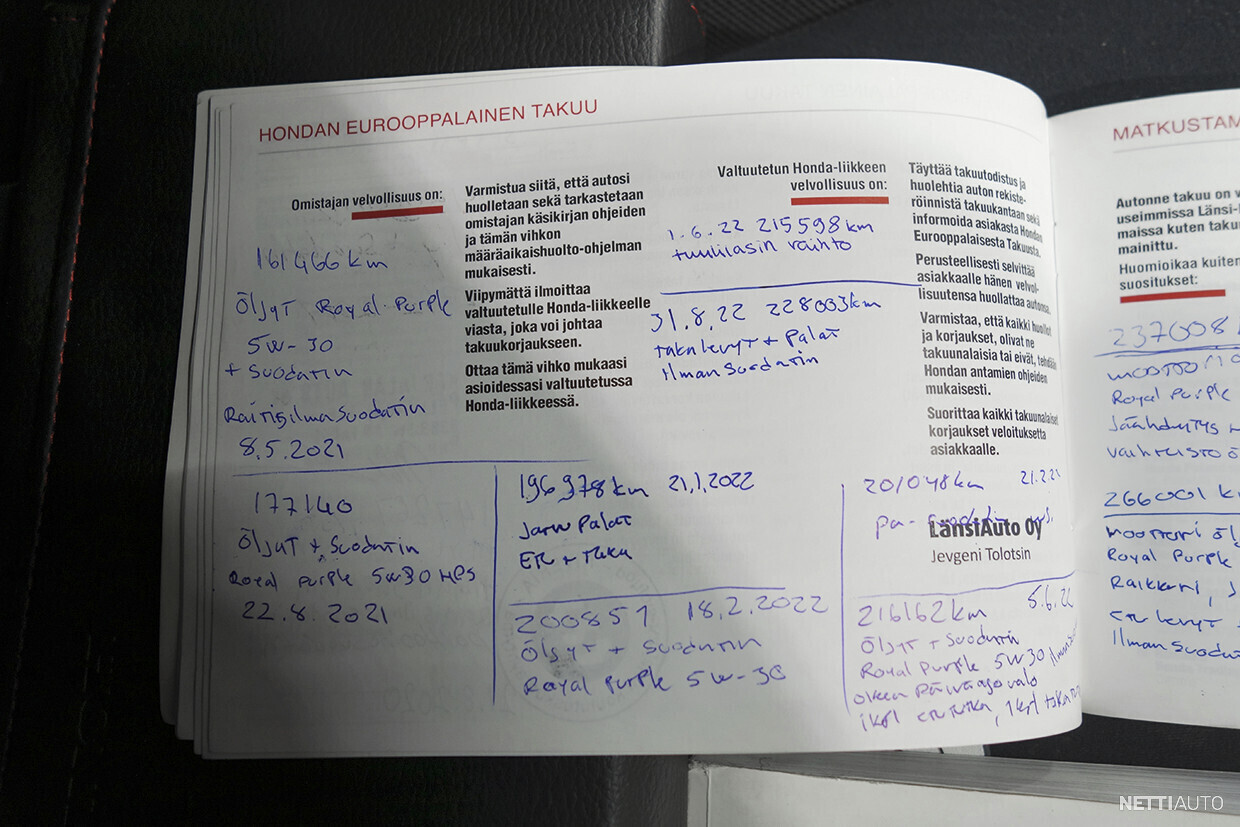 HONDAN EUROOPPALAINEN TAKUU
Omistajan velvollisuus on:
161466 km
Öljyt Royal Purple
5W-30
+ Suodatin
Raitisilmasuodatin
8.5.2021
Varmistua siitä, että autosi
huolletaan sekä tarkastetaan
omistajan käsikirjan ohjeiden
ja tämän vihkon
määräaikaishuolto-ohjelman
mukaisesti.
Viipymättä ilmoittaa
valtuutetulle Honda-liikkeelle
viasta, joka voi johtaa
takuukorjaukseen.
Ottaa tämä vihko mukaasi
asioidessasi valtuutetussa
Honda-liikkeessä.
Valtuutetun Honda-liikkeen
velvollisuus on:
1.6.22 215598 km
tuulilasin vaihto
31.8.22 228003km
takalevyt + Palat
Ilman Suodatin
Täyttää takuutodistus ja
huolehtia auton rekiste-
röinnistä takuukantaan sekä
informoida asiakasta Hondan
Eurooppalaisesta Takuusta.
Perusteellisesti selvittää
asiakkaalle hänen velvol-
lisuutensa huollattaa autonsa.
Varmistaa, että kaikki huollot
ja korjaukset, olivat ne
takuunalaisia tai eivät, tehdään
Hondan antamien ohjeiden
mukaisesti.
Suorittaa kaikki takuunalaiset
korjaukset veloituksetta
asiakkaalle.
177140
Öljyt + Suodatin
Royal Purple 5W30 HPS
22.8.2021
196978km 21,1,2022
Jarru Palat
Etu + Taka
200851 18,2.2022
Öljyt + Suodatin
Royal Purple 5W-30
201048km 21.2.2
LänsiAuto Oy
Jevgeni Tolotsin
216162 km 5.6.22
Öljyt + Suodatin
Royal Purple 5W30
oikea Päiväajovalo
MATKUSTAM
Autonne takuu on v
useimmissa Länsi-
maissa kuten taku
mainittu.
Huomioikaa kuiten
suositukset:
237008
Royal Purple
Jäähdytys
vaihteisto ö
266001 k
moottori Öl
Royal Purple
Raikkari, J
etu levyt
Ilman Suodat
NETTIAUTO